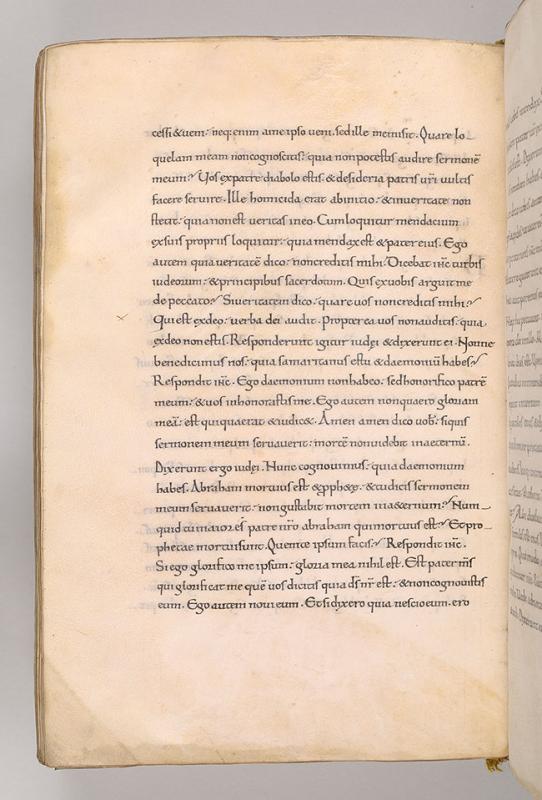 cessi & veni: neq; enim a me ipso veni. sed ille me misit. Quare lo
quelam meam non cognoscitis: quia non potestis audire sermonē
meum? Vos ex patre diabolo estis & desideria patris vr̄i vultis
facere servire. Ille homicida erat ab initio: & in veritate non
stetit: quia non est veritas in eo. Cum loquitur mendacium
ex suis propriis loquitur: quia mendax est & pater eius. Ego
autem quia veritatē dico: non creditis mihi. Dicebat ihc̄ turbis
iudeorum: & principibus sacerdotum. Quis ex vobis arguit me
de peccato? Si veritatem dico: quare vos non creditis mihi?
Qui est ex deo: verba dei audit. Propterea vos non auditis: quia
ex deo non estis. Responderunt igitur iudęi & dixerunt ei. Nonne
benedicimus nos: quia samaritanus es tu & daemoniū habes?
Respondit ihc̄. Ego daemonium non habeo: sed honorifico patrē
meum: & vos inhonorastis me. Ego autem non quaero gloriam
meā: est qui quaerat & iudic&. Amen amen dico vob̄: si quis
sermonem meum servaverit: mortē non videbit in aeternū.
Dixerunt ergo iudei. Nunc cognovimus: quia daemonium
habes. Abraham mortuus est & ꝓph&ę: & tu dicis si sermonem
meum servaverit: non gustabit mortem in a&ernum? Num
quid tu maior es patre nr̄o abraham qui mortuus est? Et pro
phetae mortui sunt. Quem te ipsum facis? Respondit ihc̄.
Si ego glorifico me ipsum: gloria mea nihil est. Est pater m̄s
qui glorificat me quē vos dicitis quia d̄s nr̄ est: & non cognovistis
eum. Ego autem novi eum. Et si dixero quia nescio eum. ero